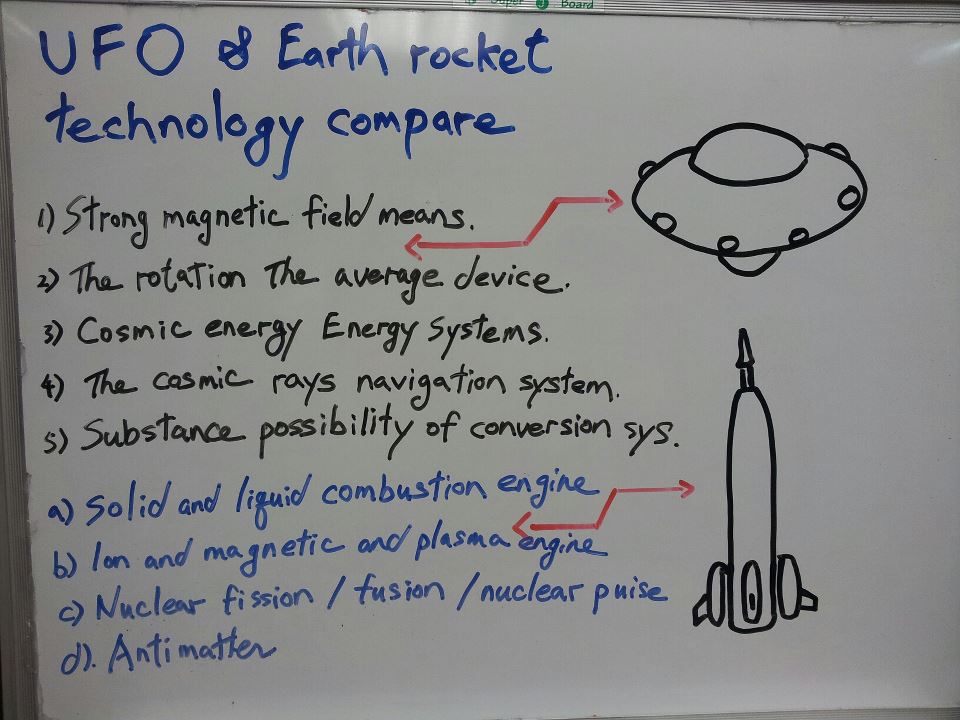 Super Board
UFO & Earth rocket
technology compare
1) Strong magnetic field means.
2) The rotation The average device.
3) Cosmic energy Energy Systems.
4) The cosmic rays navigation system.
5) Substance possibility of conversion sys.
a) Solid and liquid combustion engine
b) Ion and magnetic and plasma engine
c) Nuclear fission / fusion / nuclear puise
d). Antimatter